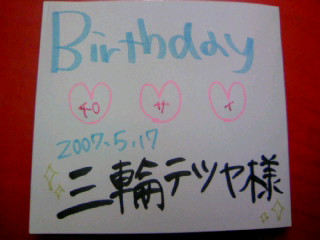 Birthday
チロ サ イ
2007.5.17
三輪テツヤ様